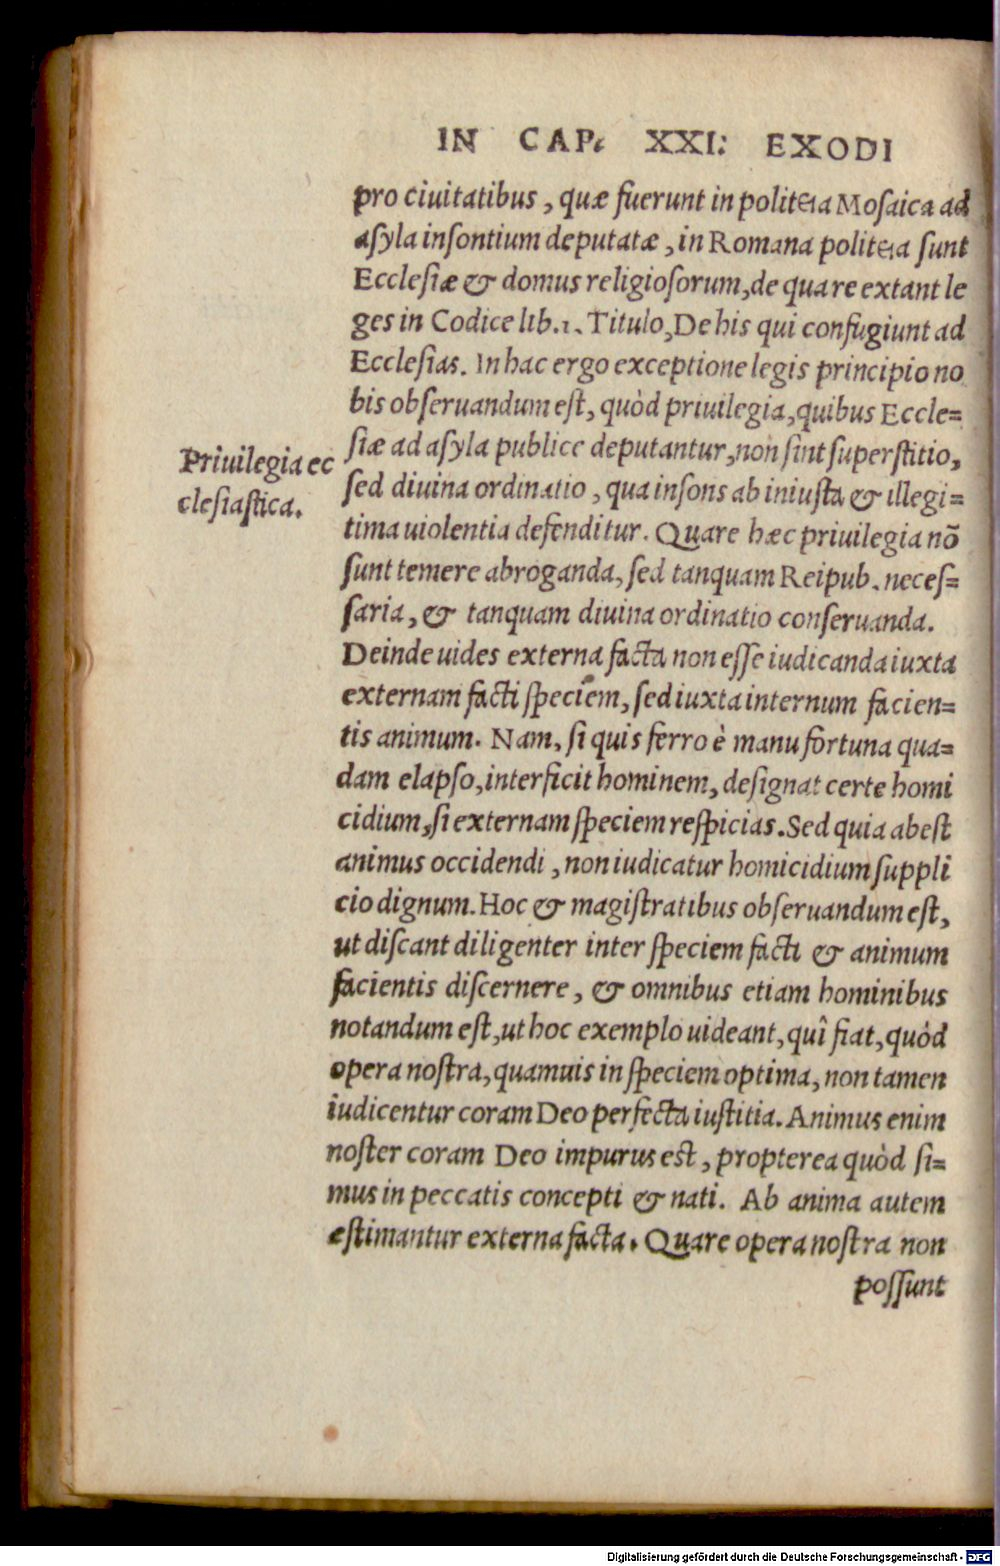 IN CAP. XXI. EXODI
pro ciuitatibus, quæ fuerunt in politeia Mosaica ad
asyla insontium deputatæ, in Romana politeia sunt
Ecclesiæ & domus religiosorum, de qua re extant le
ges in Codice lib.1. Titulo, De his qui confugiunt ad
Ecclesias. In hac ergo exceptione legis principio no
bis obseruandum est, quòd priuilegia, quibus Eccle=
siæ ad asyla publice deputantur, non sint superstitio,
Priuilegia ec
clesiastica.
sed diuina ordinatio, qua insons ab iniusta & illegi=
tima uiolentia defenditur. Quare hæc priuilegia nõ
sunt temere abroganda, sed tanquam Reipub. neces=
saria, & tanquam diuina ordinatio conseruanda.
Deinde uides externa facta non esse iudicanda iuxta
externam facti speciem, sed iuxta internum facien=
tis animum. Nam, si quis ferro è manu fortuna qua=
dam elapso, interficit hominem, designat certe homi
cidium, si externam speciem respicias. Sed quia abest
animus occidendi, non iudicatur homicidium suppli
cio dignum. Hoc & magistratibus obseruandum est,
ut discant diligenter inter speciem facti & animum
facientis discernere, & omnibus etiam hominibus
notandum est, ut hoc exemplo uideant, quî fiat, quòd
opera nostra, quamuis in speciem optima, non tamen
iudicentur coram Deo perfecta iustitia. Animus enim
noster coram Deo impurus est, propterea quòd si=
mus in peccatis concepti & nati. Ab anima autem
estimantur externa facta. Quare opera nostra non
possunt
Digitalisierung gefördert durch die Deutsche Forschungsgemeinschaft - DFG